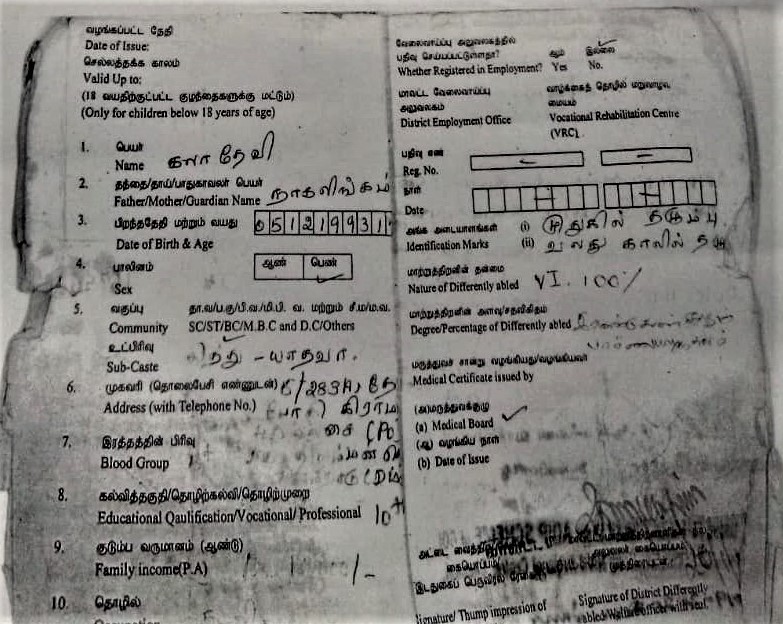 வழங்கப்பட்ட தேதி
Date of Issue:
செல்லத்தக்க காலம்
Valid Up to:
(18 வயதிற்குட்பட்ட குழந்தைகளுக்கு மட்டும்)
(Only for children below 18 years of age)
1. பெயர்
Name கலா தேவி
2. தந்தை/தாய்/பாதுகாவலர் பெயர்
Father/Mother/Guardian Name நாகலிங்கம்
3. பிறந்ததேதி மற்றும் வயது 05121993
Date of Birth & Age
4. பாலினம் ஆண் பெண்
Sex
5. வகுப்பு தா.வ/ப.கு/பி.வ./மி.பி. வ. மற்றும் சீ.ம/ம.வ.
Community SC/ST/BC/M.B.C and D.C/Others
உட்பிரிவு
Sub-Caste இந்து - யாதவா.
6. முகவரி (தொலைபேசி எண்ணுடன்)
Address (with Telephone No.) கிராம
7. இரத்தத்தின் பிரிவு
Blood Group
8. கல்வித்தகுதி/தொழிற்கல்வி/தொழிற்முறை
Educational Qaulification/Vocational/ Professional 10th
9. குடும்ப வருமானம் (ஆண்டு)
Family income(P.A)
10. தொழில்
வேலைவாய்ப்பு அலுவலகத்தில்
பதிவு செய்யப்பட்டுள்ளதா? ஆம் இல்லை
Whether Registered in Employment? Yes No.
மாவட்ட வேலைவாய்ப்பு வாழ்க்கைத் தொழில் மறுவாழ்வு
அலுவலகம் மையம்
District Employment Office Vocational Rehabilitation Centre
(VRC)
பதிவு எண்
Reg. No.
நாள்
Date
அங்க அடையாளங்கள் (i) முதுகில் தழும்பு
Identification Marks (ii) வலது காலில்
மாற்றுத்திறனின் தன்மை
Nature of Differently abled VI. 100%
மாற்றுத்திறனின் அளவு/சதவிகிதம்
Degree/Percentage of Differently abled
மருத்துவர் சான்று வழங்கியது/வழங்கியவர்
Medical Certificate issued by
(அ)மருத்துவக்குழு
(a) Medical Board
(ஆ) வழங்கிய நாள்
(b) Date of Issue
Signature/ Thump impression of Signature of District Differently
abled Welfare officer with seal.